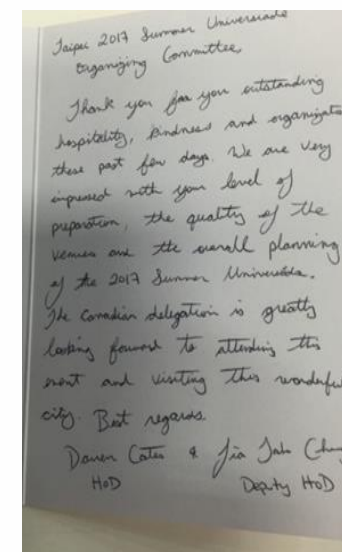 Taipei 2017 Summer Universiade
Organizing Committee,
Thank you for you outstanding
hospitality, kindness and organizatio
these past few days. We are very
impressed with your level of
preparation, the quality of the
venues and the overall planning
of the 2017 Summer Universiada.
The Canadian delegation is greatly
looking forward to attending this
event and visiting this wonderful
city. Best regards.
Darren Cates & Jia
HoD Deputy HoD